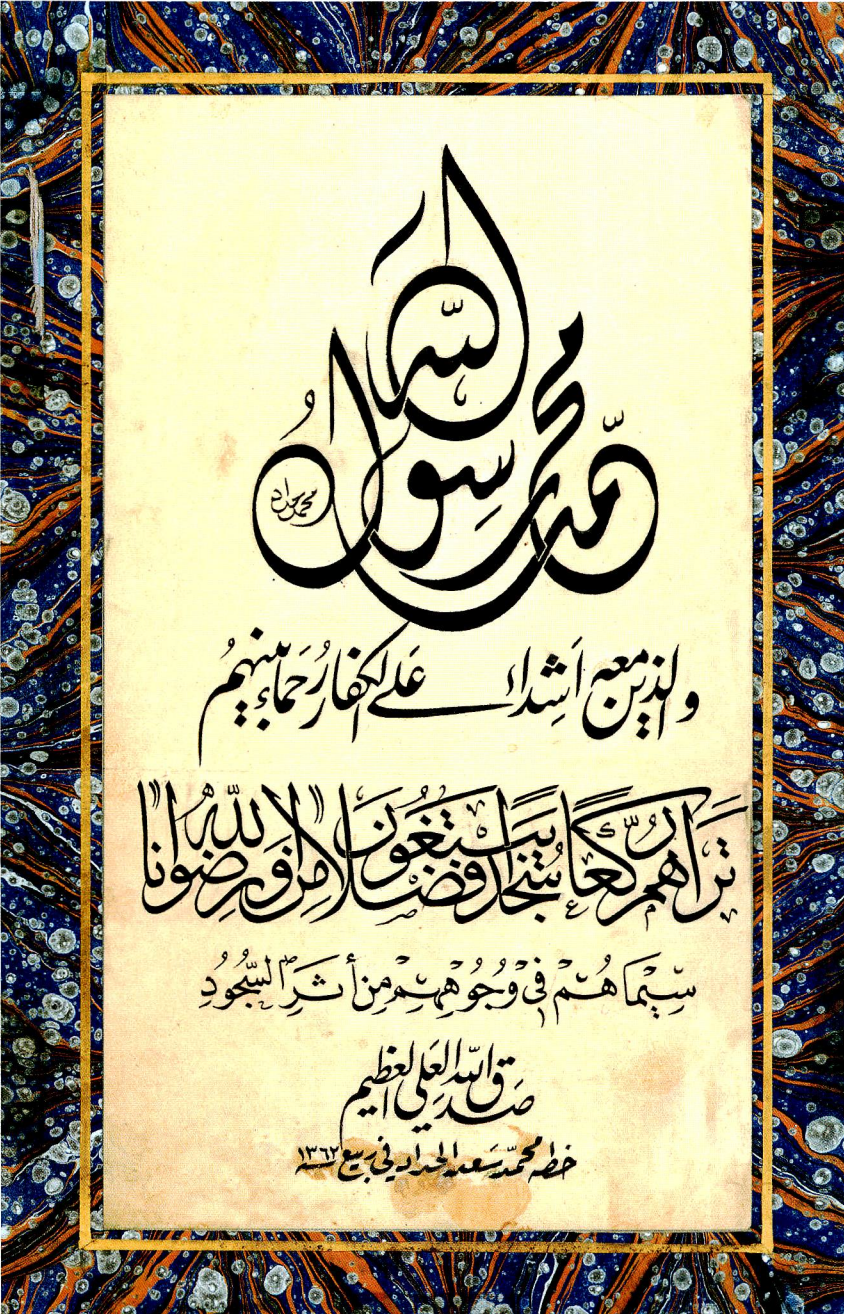 محمد رسول الله
محمد حداد
والذين معه اَشِداء عَلى الكفار رُحماءُ بينهمُ
تَرَاهُمْ رُكَّعًا سُجَّدًا يَبْتَغُونَ فَضْلًا مِنَ اللّٰهِ وَرِضْوَانًا
سِيْمَاهُمْ فِي وُجُوهِهِمْ مِن أثَرِ السُّجُودِ
صَدَق اللّه العَلي العظيم
خطه محمّد سَعد الحداد في ربيع سنة ١٣٦٢